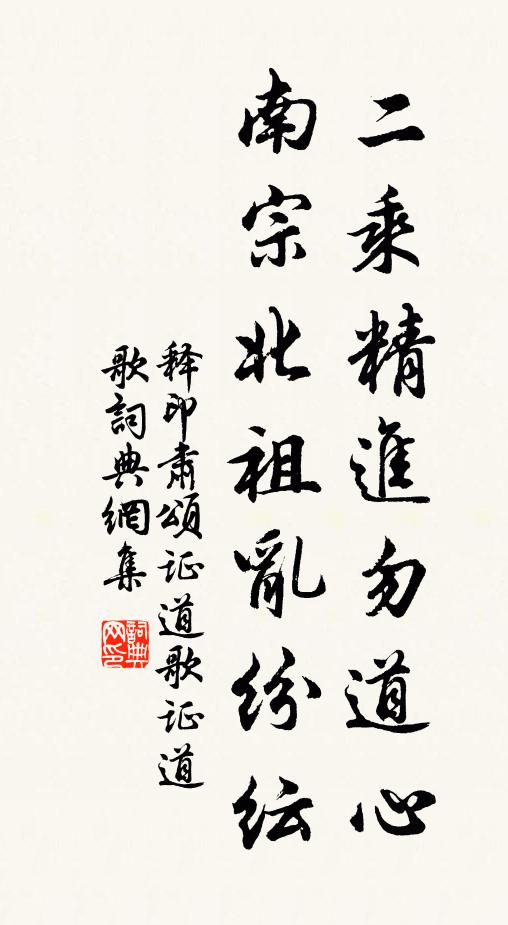 二乘精進勿道心
南宗北祖亂紛紜
释印肃頌证道歌证道
歌詞典網集
詞典网印